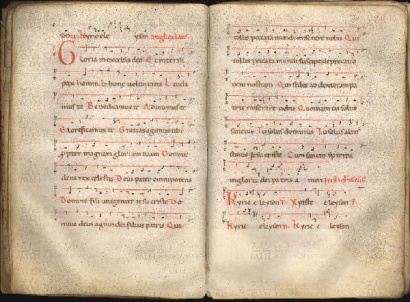 Gloria in excelsis deo Et in terra
pax hominibus bone voluntatis Lauda
mus te Benedicimus te Adoramus te
Glorificamus te Gratias agimus tibi
propter magnam gloriam tuam Domine
deus rex celestis Deus pater omnipotens
Domine fili unigenite iesu christe Do
mine deus agnus dei filius patris Qui
tollis peccata mundi miserere nobis Qui
tollis peccata mundi suscipe deprecatio
nem nostram Qui sedes ad dexteram pa
tris miserere nobis Quoniam tu solus
sanctus Tu solus dominus Tu solus altis
simus iesu christe Cum sancto spiritu
in gloria dei patris amen
Kyrie eleyson Xpiste eleyson
Kyrie eleyson Kyrie eleyson